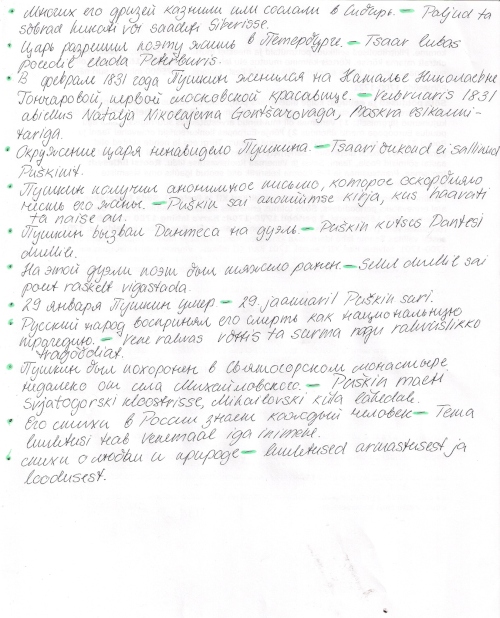 • Многих его друзей казнили или сослали в Сибирь. – Paljud ta
sõbrad hukati või saadeti Siberisse.
• Царь разрешил поэту жить в Петербурге. – Tsaar lubas
poeedile elada Peterburis.
• В феврале 1831 года Пушкин женился на Наталье Николаевне
Гончаровой, первой московской красавице. – Veebruaris 1831
abiellus Natalja Nikolajevna Gontšarovaga, Moskva esikauni-
tariga.
• Окружение царя ненавидело Пушкина. – Tsaari õukond ei sallinud
Puškinit.
• Пушкин получил анонимное письмо, которое оскорбляло
честь его жены. – Puškin sai anonüümse kirja, kus haavati
ta naise au.
• Пушкин вызвал Дантеса на дуэль. – Puškin kutsus Dantesi
duellile.
• На этой дуэли поэт был тяжело ранен. – Sellel duellil sai
poeet raskelt vigastada.
• 29 января Пушкин умер – 29. jaanuaril Puškin suri.
• Русский народ воспринял его смерть как национальную
трагедию. – Vene rahvas võttis ta surma nagu rahvuslikko
tragöödiat.
• Пушкин был похоронен в Святогорском монастыре
недалеко от села Михайловского. – Puškin maeti
Svjatogorski kloostrisse, Mihailovski küla lähedale.
• Его стихи в России знает каждый человек – Tema
luuletusi teab Venemaal iga inimene.
• стихи о любви и природе – luuletused armastusest ja
loodusest.